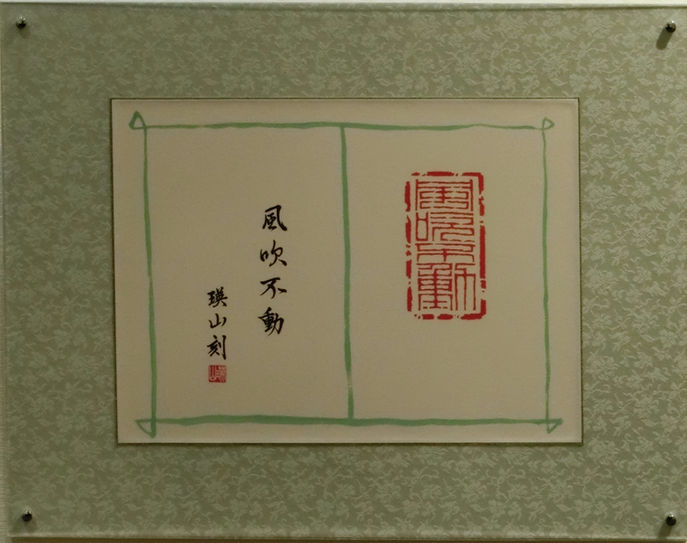 風吹不動
風吹不動
瑛山刻